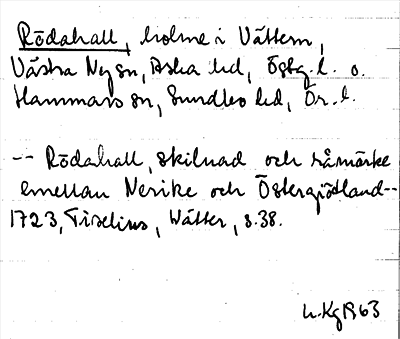 Rödahall, holme i Vättern,
Västra Ny sn, Aska hd, Östg. l. o.
Hammars sn, Sundbo hd, Ör. l.
-- Rödahall, skilnad och råmärke
emellan Nerike och Östergiötland--
1723, Tiselius, Wätter, s. 38.
h.Kg 1963